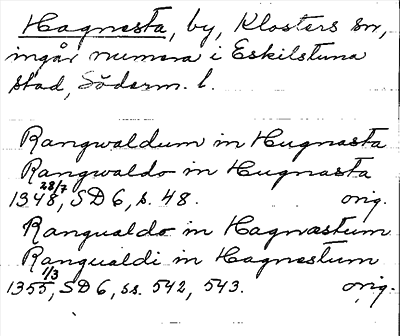 Hagnesta, by, Klosters sn,
ingår numera i Eskilstuna
stad, Söderm. l.
Rangwaldum in Hugnasta
Rangwaldo in Hugnasta
1348 28/7, SD 6, s. 48. orig.
Rangualdo in Hagnæstum
Rangualdi in Hagnestum
1355 1/3, SD 6, ss. 542, 543. orig.